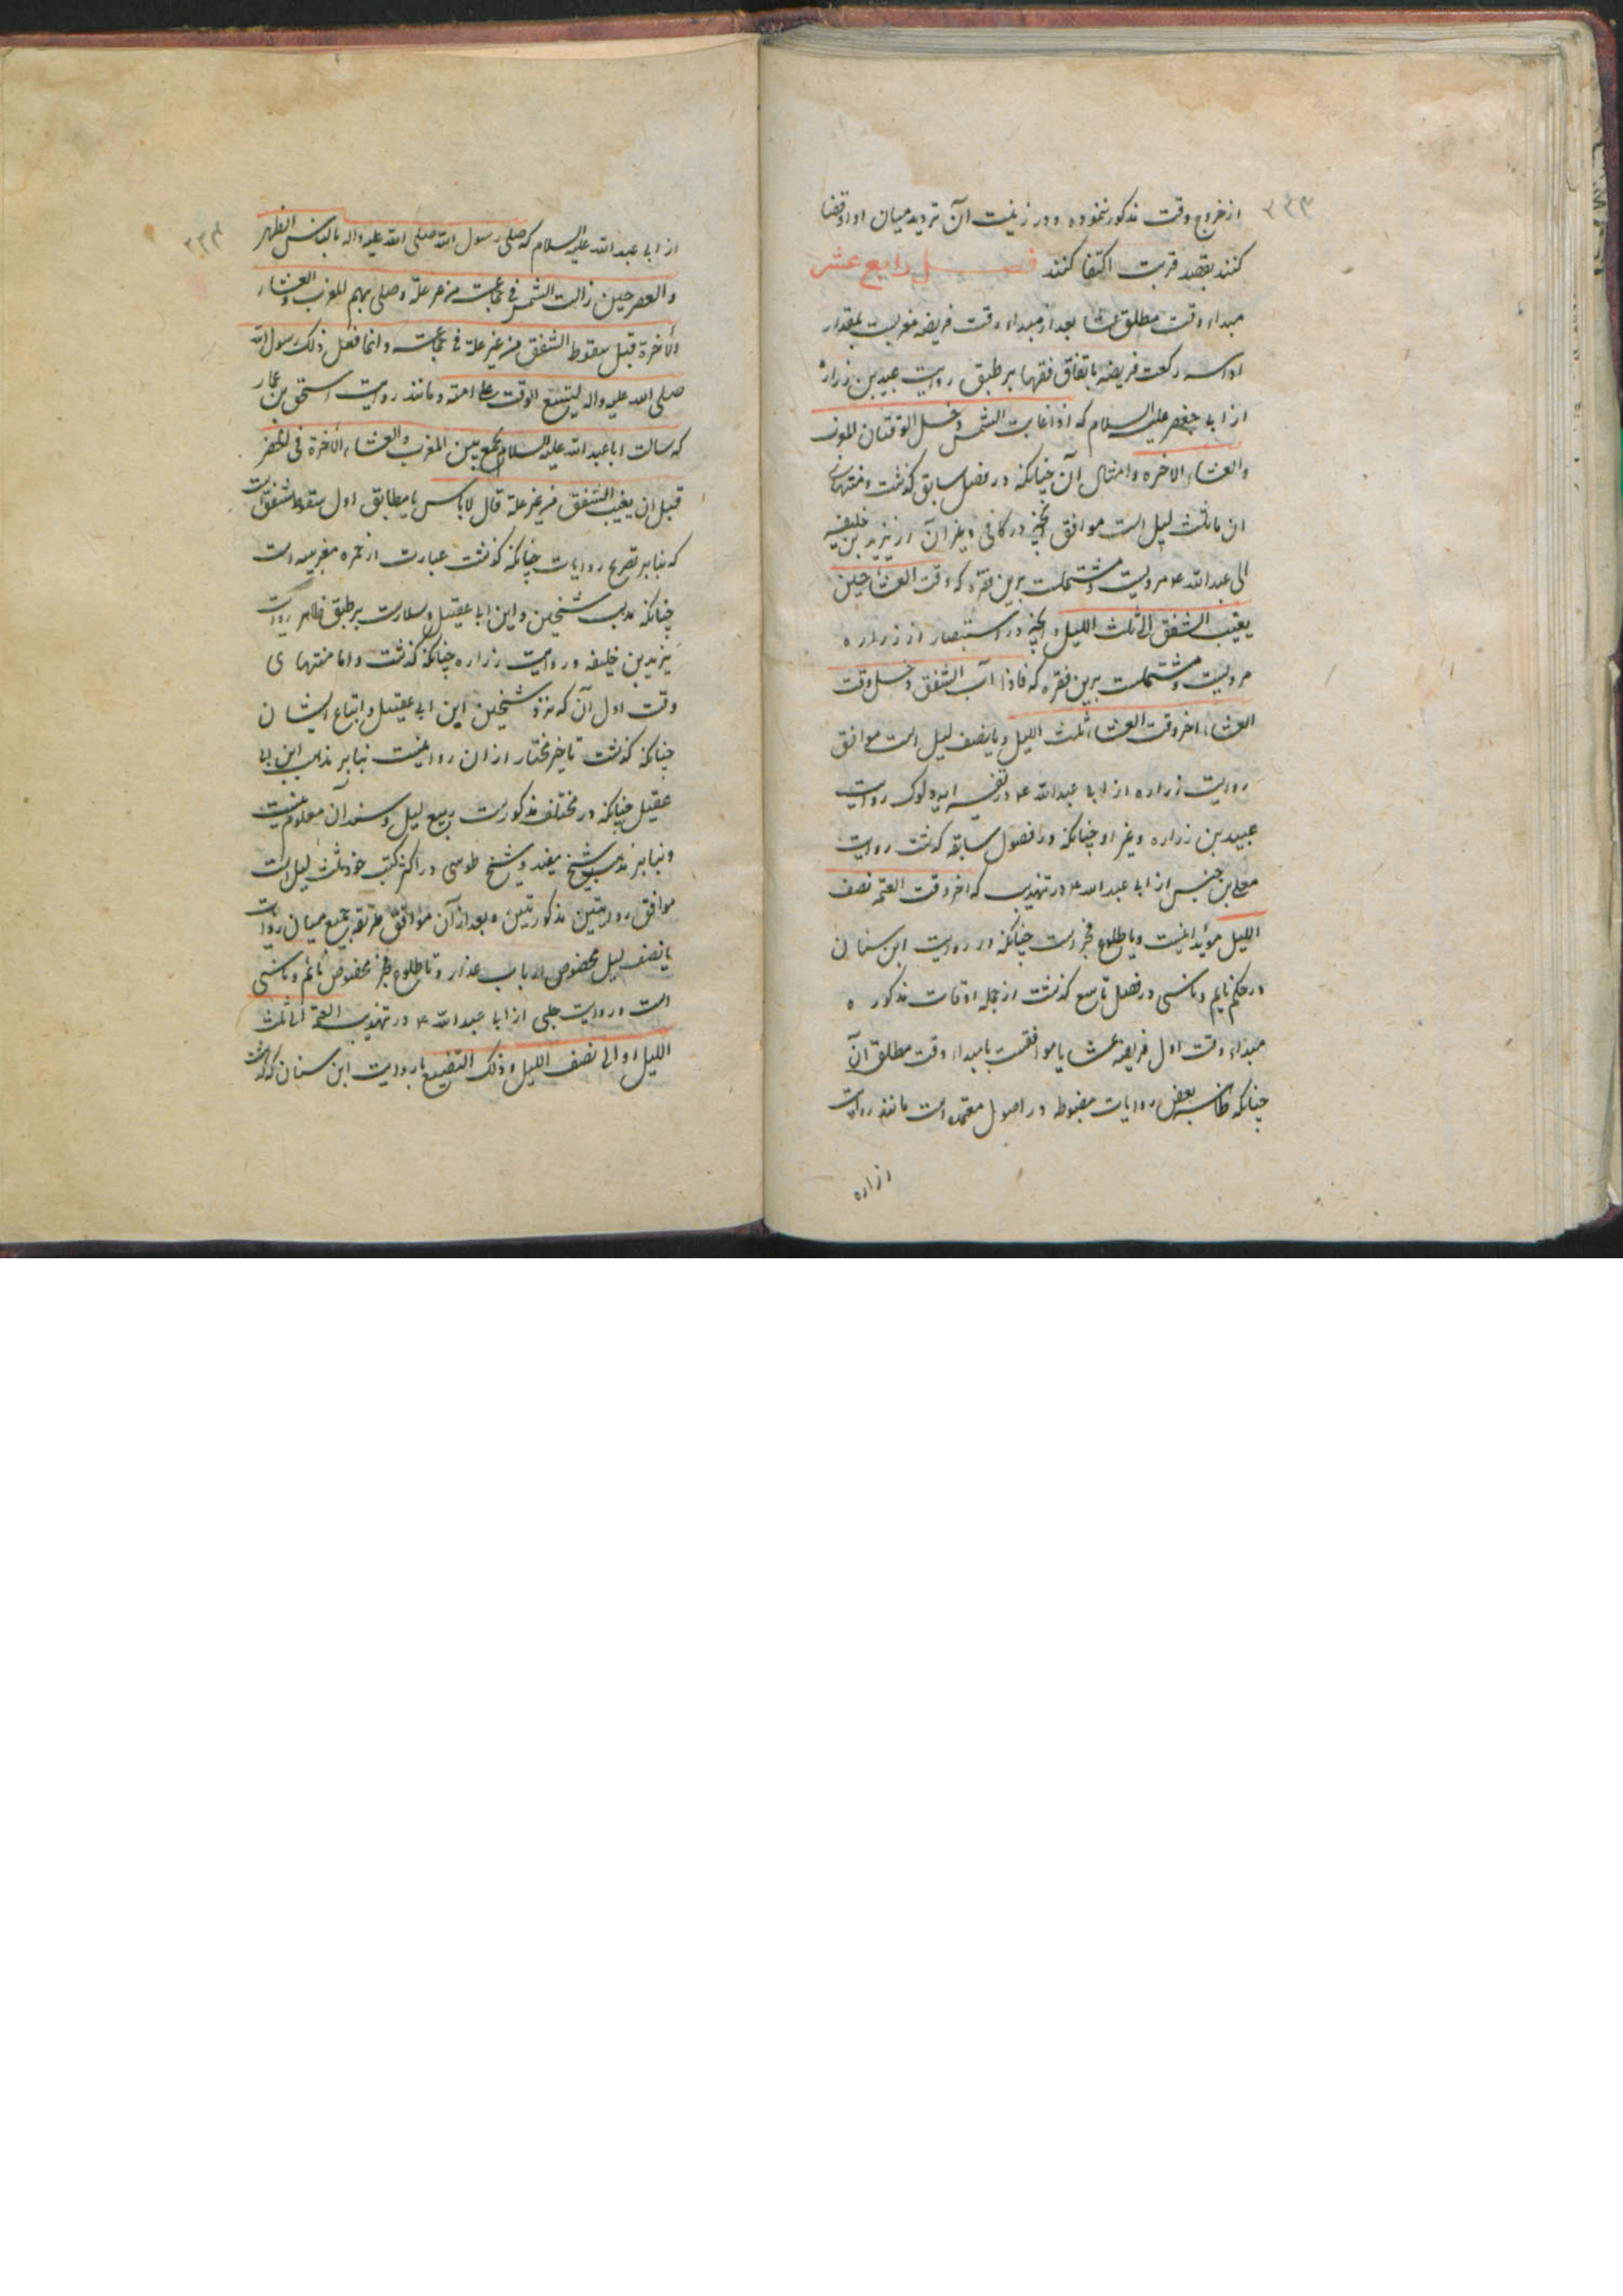 ۲۳۳
از خروج وقت مذکور ننموده و در نیت آن تردید میان ادا و قضا
کنند بقصد قربت اکتفا کنند فصل رابع عشر
مبداء وقت مطلق عشا بعد از مبداء وقت فریضه مغربست بمقدار
ادا سه رکعت فریضه باتفاق فقها بر طبق روایت عبید بن زراره
از ابی جعفر علیه السلام که اذا غابت الشمس دخل الوقتان المغرب
والعشاء الاخره و امثال آن چنانکه در فصل سابق گذشت و منتهای
ان تا ثلث لیل است موافق آنچه در کافی و غیر آن از یزید بن خلیفه
الی عبد الله ۴ مرویست و مشتملست برین فقره که وقت العشا حین
یغیب الشفق الی ثلث اللیل و آنچه در استبصار از زراره
مرویست و مشتملست برین فقره که فاذا آب الشفق دخل وقت
العشاء اخر وقت العشاء ثلث اللیل و یا نصف لیل است موافق
روایت زراره از ابی عبد الله ۴ در تفسیر ایه دلوک و روایت
عبید بن زراره و غیر او چنانکه در فصول سابقه گذشت و روایت
معلی بن خنیس از ابی عبد الله ۴ در تهذیب که اخر وقت العتمه نصف
اللیل مؤید اینست و یا طلوع فجر است چنانکه در روایت ابن سنان
در حکم نایم و ناسی در فصل تاسع گذشت از جمله اوقات مذکوره
مبداء وقت اول فریضه عشا یا موافقست با مبداء وقت مطلق آن
چنانکه ظاهر بعض روایات مضبوطه در اصول معتمده است مانند روایت
زراره
۲۳۴
از ابی عبد الله علیه السلام که صلی رسول الله صلی الله علیه واله بالناس الظهر
والعصر حین زالت الشمس فی جماعت من غیر علة و صلی بهم المغرب والعشاء
الأخرة قبل سقوط الشفق من غیر علة فی جماعت و انما فعل ذلک رسول الله
صلی الله علیه واله لیتسع الوقت علی امته و مانند روایت اسحق بن عمار
که سالت ابا عبد الله علیه السلام یجمع بین المغرب والعشاء الأخرة فی الحضر
قبل ان یغیب الشفق من غیر علة قال لا باس یا مطابق اول سقوط شفق است
که بنابر تصریح روایات چنانکه گذشت عبارت از حمره مغربیه است
چنانکه مذهب شیخین و ابن ابی عقیل و سلارست بر طبق ظاهر روایت
یزید بن خلیفه و روایت زراره چنانکه گذشت و اما منتهای
وقت اول آن که نزد شیخین ابن ابی عقیل و اتباع ایشان
چنانکه گذشت تاخیر مختار از ان روا نیست بنابر مذهب ابن ابی
عقیل چنانکه در مختلف مذکورست ربع لیل و سند آن معلوم نیست
و بنابر مذهب شیخ مفید و شیخ طوسی در اکثر کتب خود ثلث لیل است
موافق روایتین مذکورتین و بعد از آن موافق طریقه جمع میان روایات
یا نصف لیل مخصوص ارباب عذار و تا طلوع فجر مخصوص نائم و ناسی
است و روایت حلبی از ابی عبد الله ۴ در تهذیب العتمة الی ثلث
اللیل او الی نصف اللیل و ذلک التضییع با روایت ابن سنان که گذشت